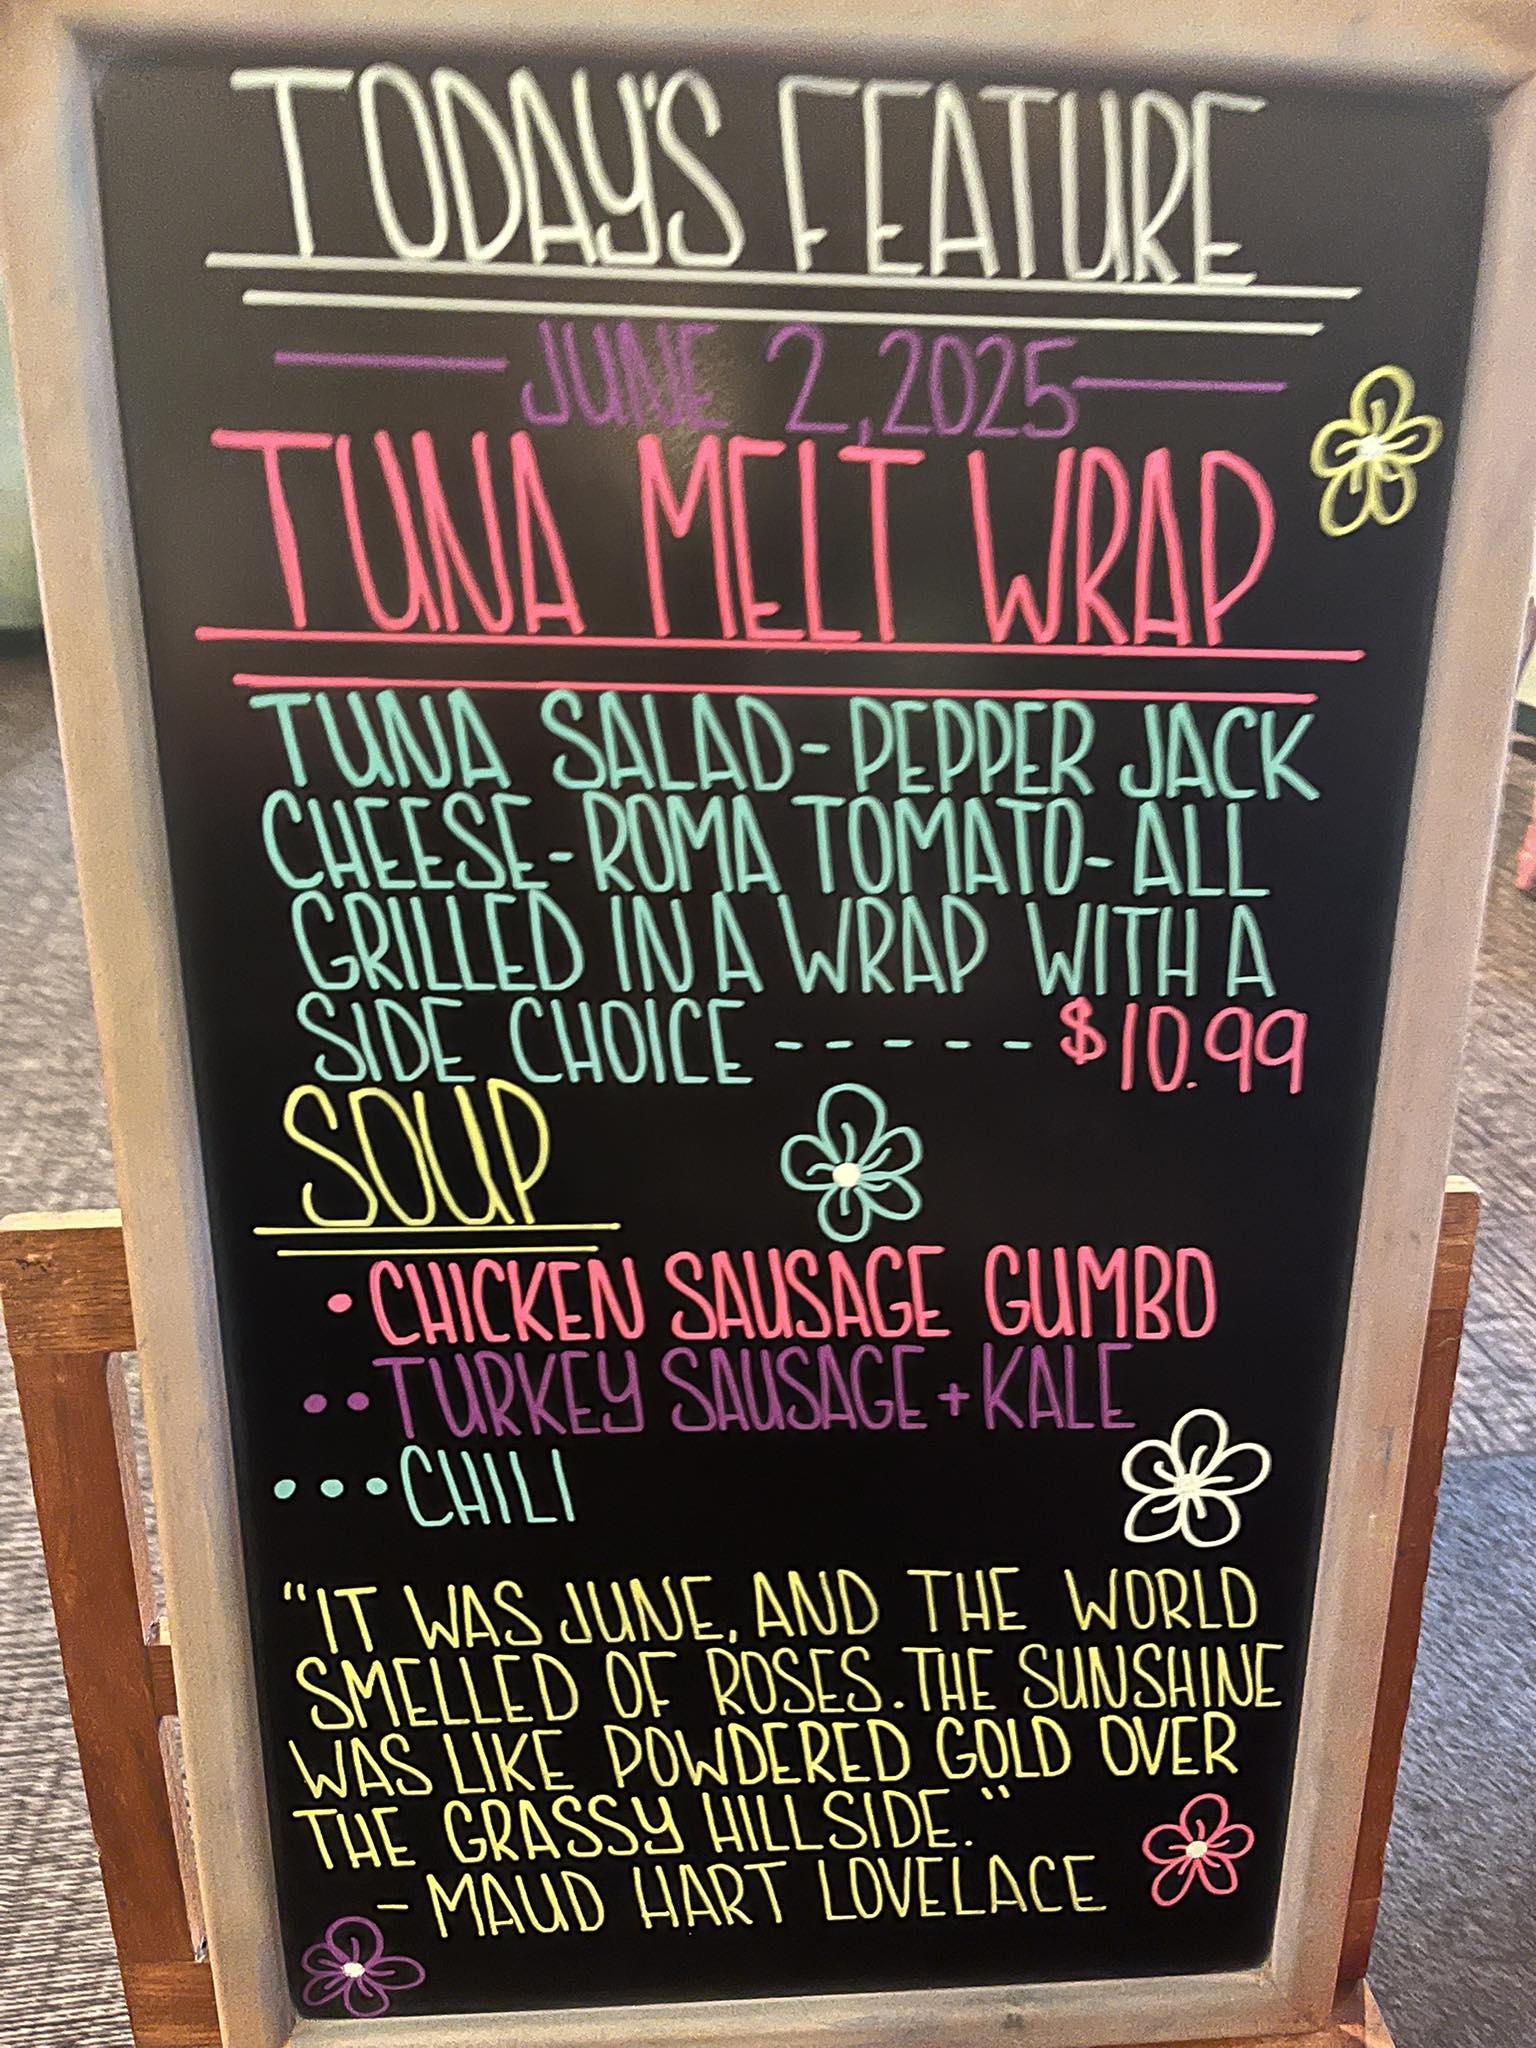 TODAY'S FEATURE
JUNE 2, 2025
TUNA MELT WRAP
TUNA SALAD - PEPPER JACK
CHEESE - ROMA TOMATO - ALL
GRILLED IN A WRAP WITH A
SIDE CHOICE ----- $10.99
SOUP
• CHICKEN SAUSAGE GUMBO
•• TURKEY SAUSAGE + KALE
••• CHILI
"IT WAS JUNE, AND THE WORLD
SMELLED OF ROSES. THE SUNSHINE
WAS LIKE POWDERED GOLD OVER
THE GRASSY HILLSIDE."
- MAUD HART LOVELACE